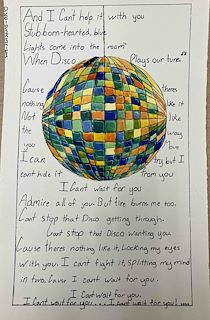 And I Can't help it with you
Stubborn-hearted, blue
Lights come into the room
When Disco Plays our tune
Cause theres
nothing like it
Not the way
you love
I can try but I
cant hide it from you
I Cant wait for you
Admire all of you. But fire burns me too.
Cant stop that Disco getting through.
Cant stop that Disco wanting you
Cause theres nothing like it, Locking my eyes
with you. I cant fight it, splitting my mind
in two, Cause I cant wait for you.
I Cant wait for you.
I Cant wait for you... I cant wait for you!